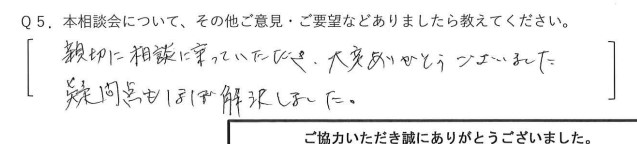 Q5．本相談会について、その他ご意見・ご要望などありましたら教えてください。
親切に相談に乗っていただき、大変ありがとうございました
疑問点もほぼ解決しました。
ご協力いただき誠にありがとうございました。